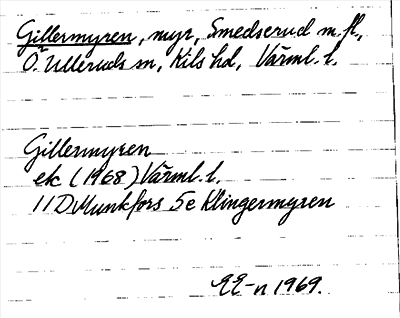 Gillermyren, myr, Smedserud m. fl.,
Ö. Ulleruds sn, Kils hd, Värml. l.
Gillermyren
ek (1968) Värml. l.
11D Munkfors 5e Klingermyren
EE-n 1969.